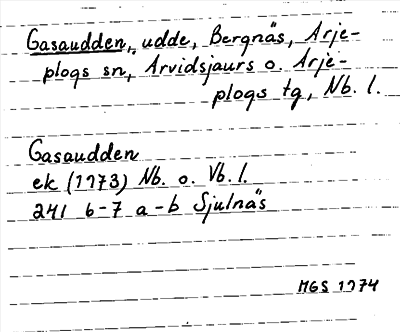 Gasaudden, udde, Bergnäs, Arje-
plogs sn, Arvidsjaurs o. Arje-
plogs tg, Nb. l.
Gasaudden
ek (1973) Nb. o. Vb. l.
24I 6-7 a-b Sjulnäs
MGS 1974